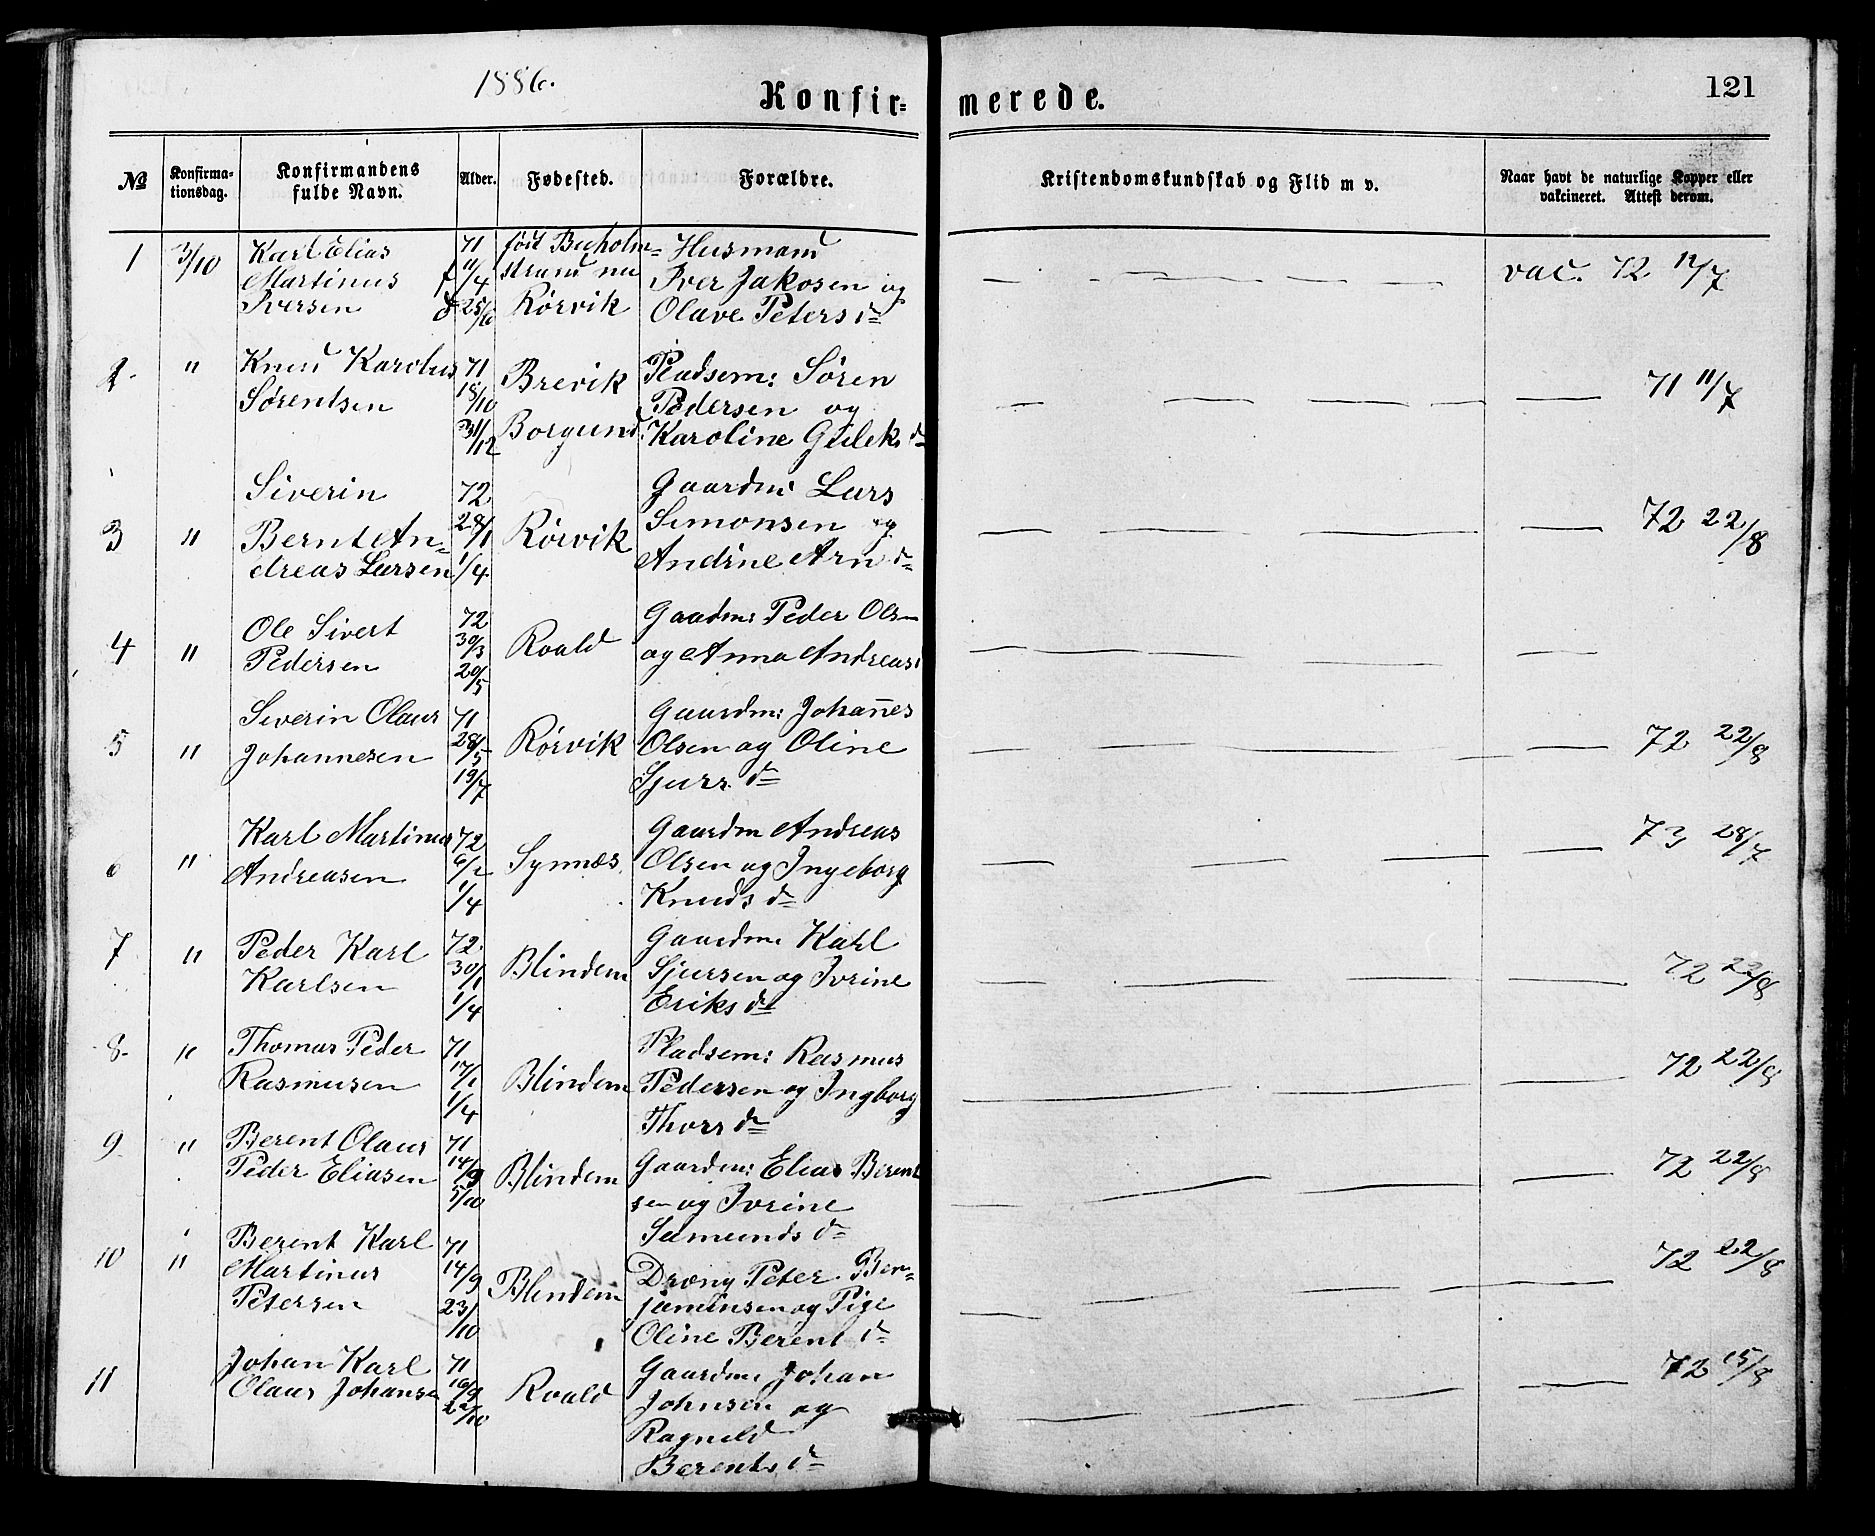 1886.
Konfir- merede.
121
№ Konfirma-tionsdag. Konfirmandens fulde Navn. Alder. Fødested. Forældre. Kristendomskundskab og Flid m v. Naar havt de naturlige Kopper eller vakcineret. Attest derom.
1 3/10 Karl Elias 71 født Husmand vac. 72 12/7
Martinus f 11/4 strand nu Iver Jakosen og
Iversen d 25/6 Rörvik Olave Peters d
2 " Knud Karolus 71 Brevik Pladsem: Sören 71 11/7
Sørentsen 18/10 Pedersen og
31/12 Borgund Karoline
Siverin 72 Gaardm: Lars
3 " Bernt An- 28/1 Rörvik Simonsen og 72 22/8
dreas Larsen 1/4 Andrine Arn d
4 " Ole Sivert 72 Roald Gaardm: Peder Olsen
Pedersen 30/3 og Anna Andreas
20/5
Severin Olaus 71 Gaardm: Johannes
5 " Johannesen 28/5 Rörvik Olsen og Oline 72 22/8
19/7 Sjurs d
Karl Martinus 72 Gaardm Andreas 73 28/7
6 " Andreasen 6/2 Synnæs Olsen og Ingeborg
1/4 Knuds d
7 " Peder Karl 72 Gaardm: Karl
Karlsen 30/1 Blindem Sjursen og Ivrine 72 22/8
1/4 Eriks d
8 " Thomas Peder 71 Pladsem: Rasmus
Rasmusen 17/1 Blindem Pedersen og Ingborg 72 22/8
1/4 Thors d
9 " Berent Olaus 71
Peder Eliasen 14/9 Blindem Gaardm: Elias Berent 72 22/8
5/10 sen og Ivrine
Samunds d
10 " Berent Karl 71 72 22/8
Martinus 14/9 Blindem Dræng Peter Ben-
Petersen 23/10 jaminsen og Pige
Oline Berent d
11 Johan Karl 71 Gaardm: Johan 72 15/8
Olaus Johansen 16/9 Roald Johnsen og
22/10 Ragnild
Berents d